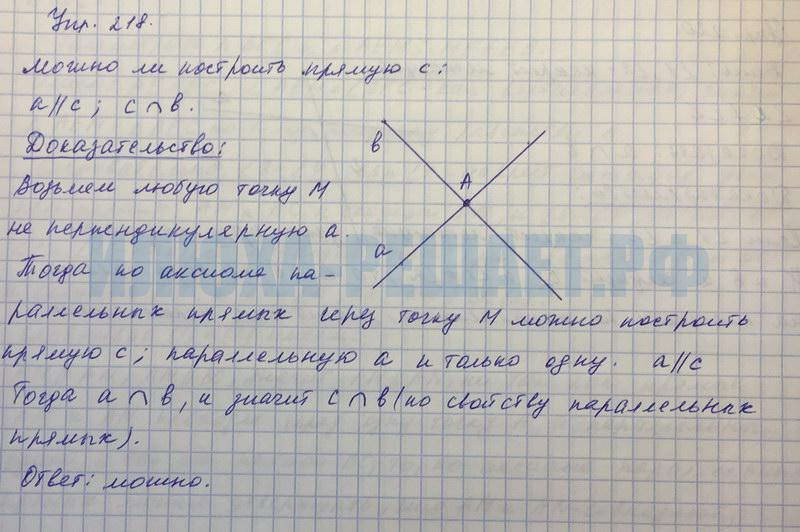 Упр. 218.
Можно ли построить прямую c:
a||c; c∩b.
Доказательство:
Возьмем любую точку M
не перпендикулярную a.
Тогда по аксиоме па-
раллельных прямых через точку M можно построить
прямую c; параллельную a и только одну. a||c
Тогда a∩b, и значит c∩b (по свойству параллельных
прямых).
Ответ: можно.
b
A
a
-РЕШАЕТ.РФ